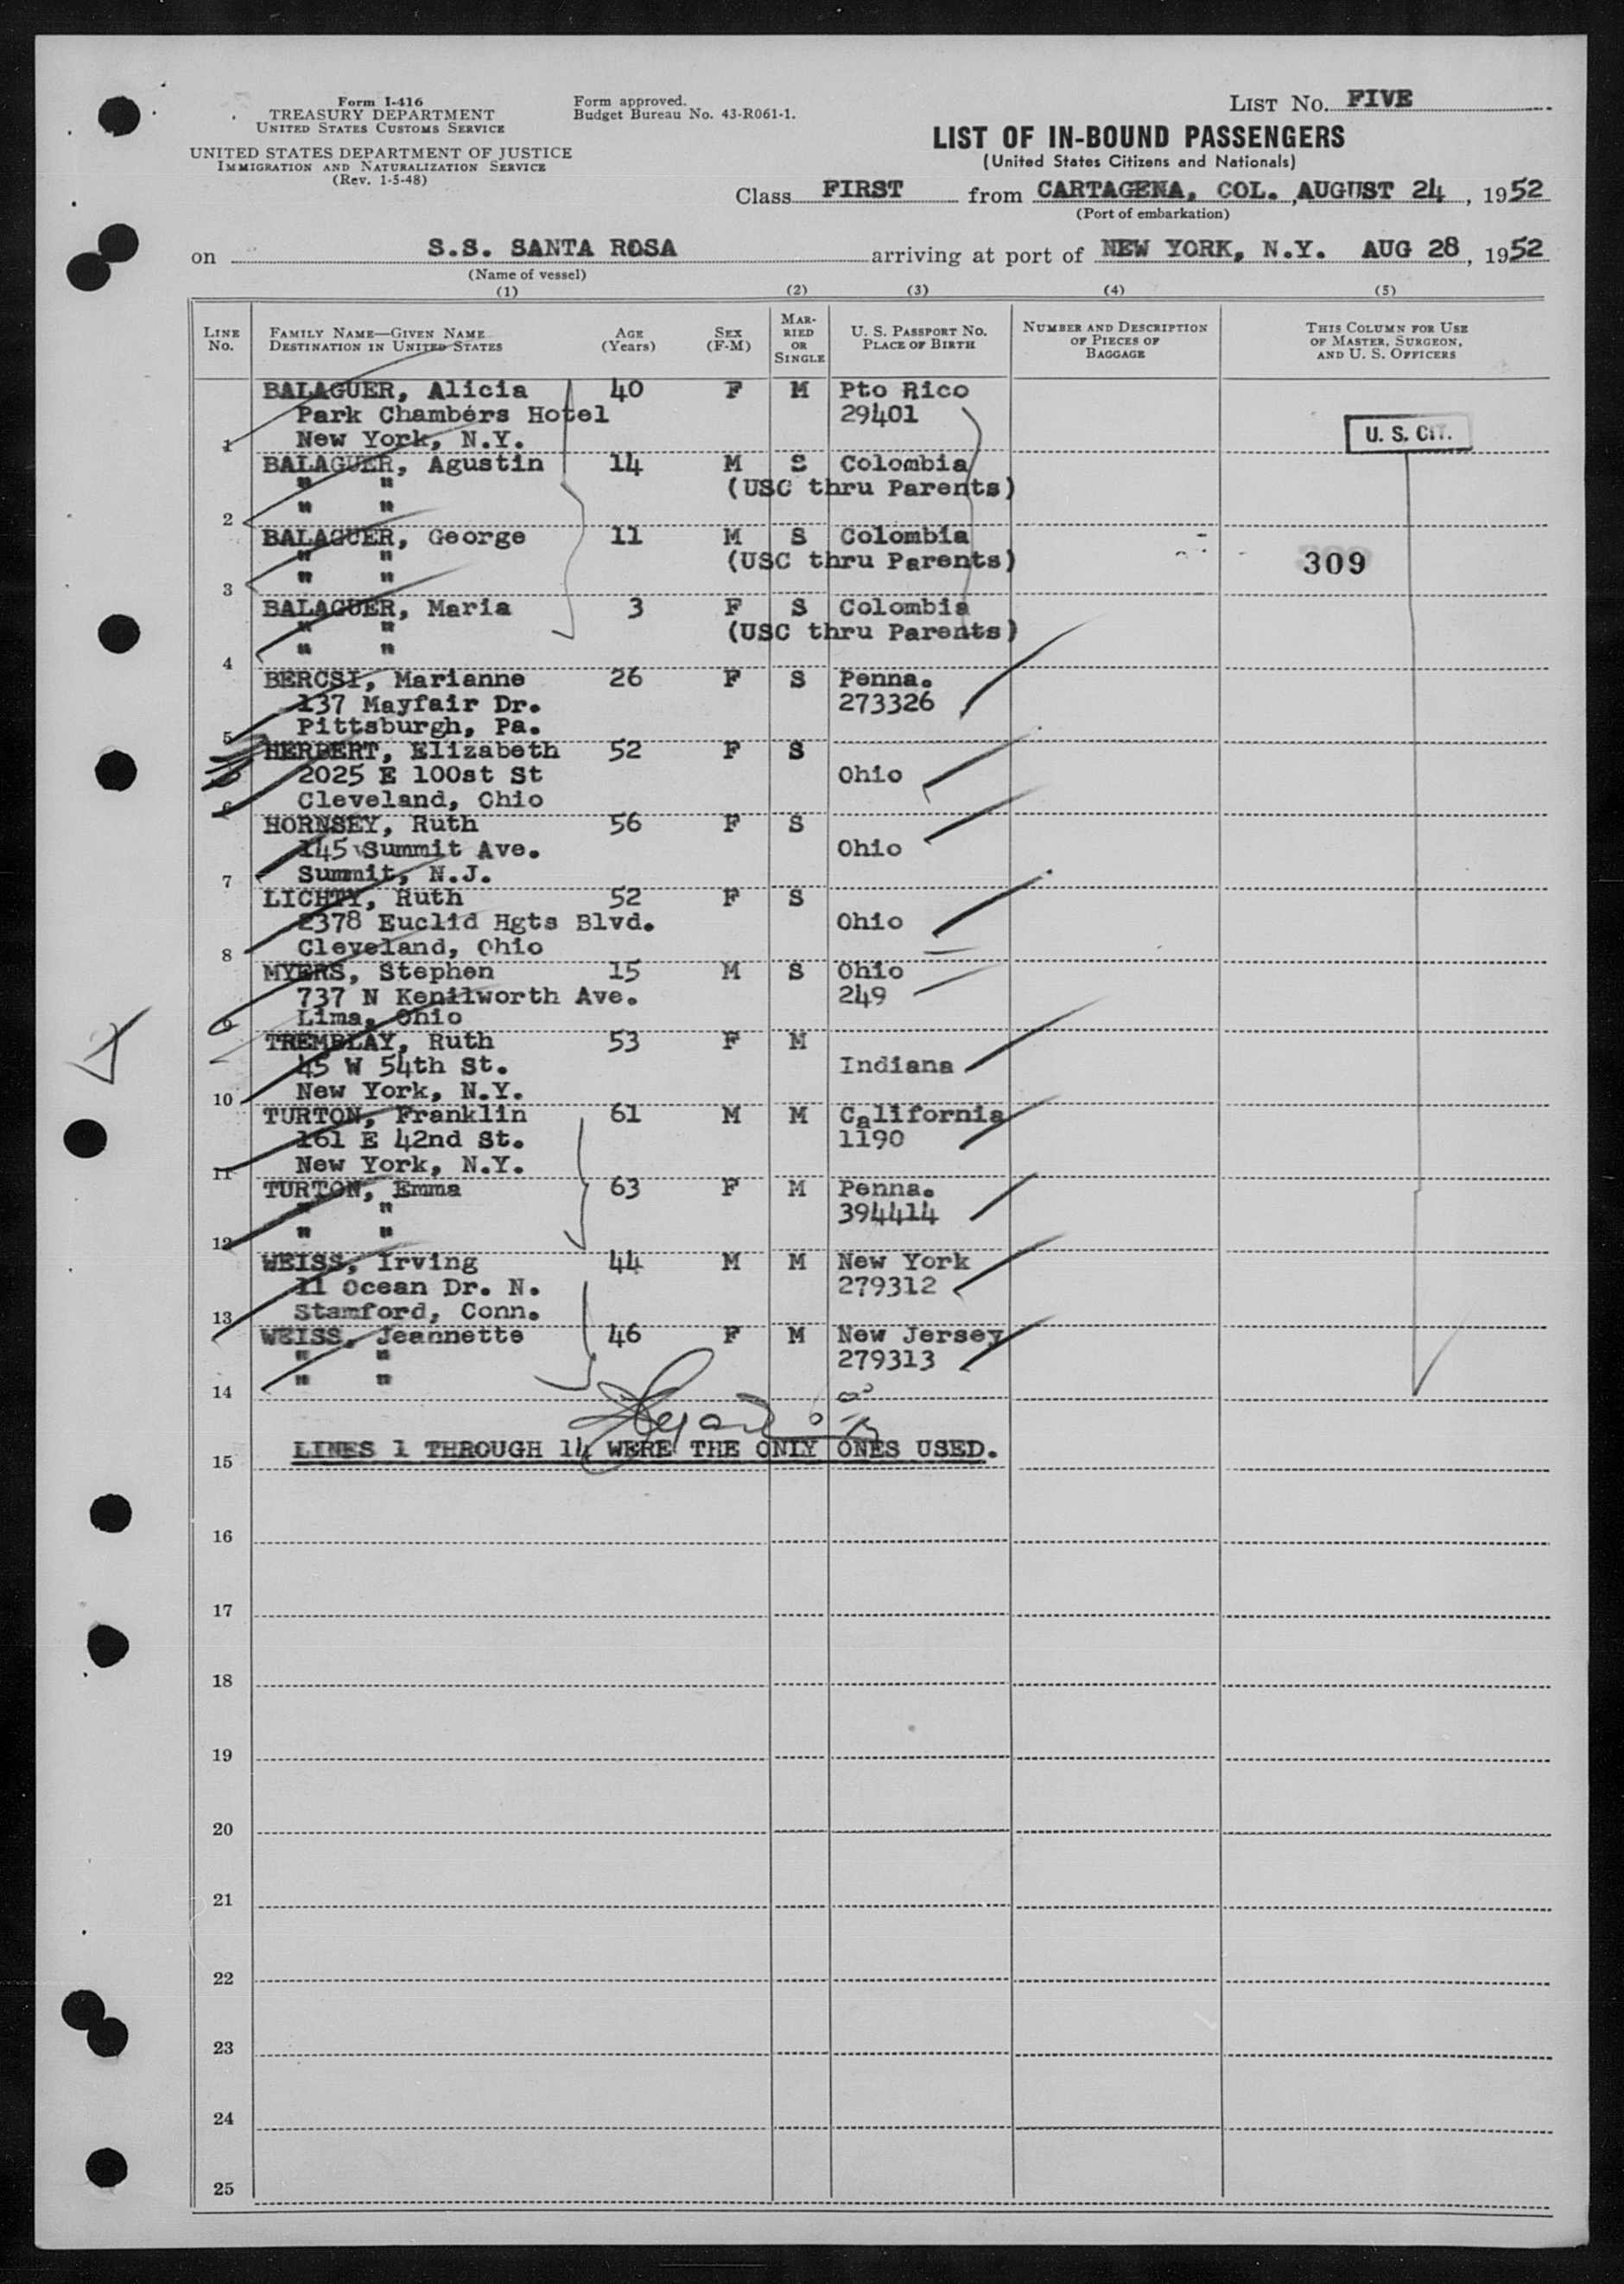 Form I-416
TREASURY DEPARTMENT
UNITED STATES CUSTOMS SERVICE
UNITED STATES DEPARTMENT OF JUSTICE
IMMIGRATION AND NATURALIZATION SERVICE
(Rev. 1-5-48)
Form approved.
Budget Bureau No. 43-R061-1.
LIST No. FIVE
LIST OF IN-BOUND PASSENGERS
(United States Citizens and Nationals)
Class FIRST from CARTAGENA, COL., AUGUST 24, 1952
(Port of embarkation)
on S.S. SANTA ROSA arriving at port of NEW YORK, N.Y. AUG 28, 1952
(Name of vessel)
(1) (2) (3) (4) (5)
LINE No. FAMILY NAME—GIVEN NAME DESTINATION IN UNITED STATES AGE (Years) SEX (F-M) MARRIED OR SINGLE U. S. PASSPORT NO. PLACE OF BIRTH NUMBER AND DESCRIPTION OF PIECES OF BAGGAGE THIS COLUMN FOR USE OF MASTER, SURGEON, AND U. S. OFFICERS
BALAGUER, Alicia 40 F M Pto Rico
Park Chambers Hotel 29401
1 New York, N.Y. U. S. CIT.
BALAGUER, Agustin 14 M S Colombia
" " (USC thru Parents)
2 " "
BALAGUER, George 11 M S Colombia
" " (USC thru Parents) 309
3 " "
BALAGUER, Maria 3 F S Colombia
" " (USC thru Parents)
4 " "
BERCSI, Marianne 26 F S Penna.
137 Mayfair Dr. 273326
5 Pittsburgh, Pa.
HERBERT, Elizabeth 52 F S
2025 E 100st St Ohio
6 Cleveland, Ohio
HORNSEY, Ruth 56 F S
145 Summit Ave. Ohio
7 Summit, N.J.
LICHTY, Ruth 52 F S
2378 Euclid Hgts Blvd. Ohio
8 Cleveland, Ohio
MYERS, Stephen 15 M S Ohio
737 N Kenilworth Ave. 249
9 Lima, Ohio
TREMBLAY, Ruth 53 F M
45 W 54th St. Indiana
10 New York, N.Y.
TURTON, Franklin 61 M M California
161 E 42nd St. 1190
11 New York, N.Y.
TURTON, Emma 63 F M Penna.
" " 394414
12 " "
WEISS, Irving 44 M M New York
11 Ocean Dr. N. 279312
13 Stamford, Conn.
WEISS, Jeannette 46 F M New Jersey
" " 279313
14 " "
15 LINES 1 THROUGH 14 WERE THE ONLY ONES USED.
16
17
18
19
20
21
22
23
24
25